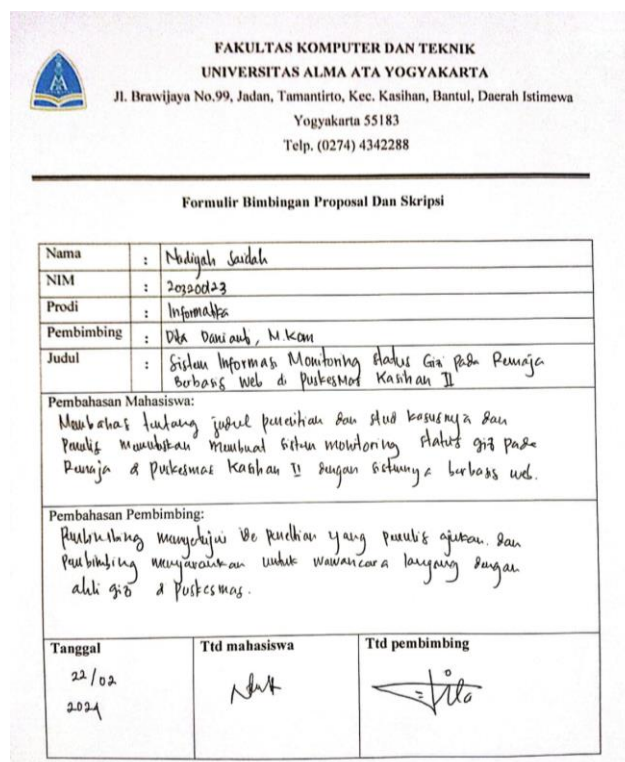 FAKULTAS KOMPUTER DAN TEKNIK
UNIVERSITAS ALMA ATA YOGYAKARTA
Jl. Brawijaya No.99, Jadan, Tamantirto, Kec. Kasihan, Bantul, Daerah Istimewa
Yogyakarta 55183
Telp. (0274) 4342288
Formulir Bimbingan Proposal Dan Skripsi
Nama : Nadiyah Saidah
NIM :
Prodi : Informatika
Pembimbing : M.Kom
Judul : Sistem Informasi Monitoring Status Gizi Pada Remaja
Berbasis Web di Puskesmas Kasihan II
Pembahasan Mahasiswa:
Membahas tentang judul penelitian dan studi kasusnya dan
Penulis memutuskan membuat sistem monitoring status gizi pada
Remaja di Puskesmas Kasihan II dengan sistemnya berbasis web.
Pembahasan Pembimbing:
Pembimbing menyetujui ide penelitian yang penulis ajukan. dan
Pembimbing menyarankan untuk wawancara langsung dengan
ahli gizi di Puskesmas.
Tanggal Ttd mahasiswa Ttd pembimbing
22/02
2024